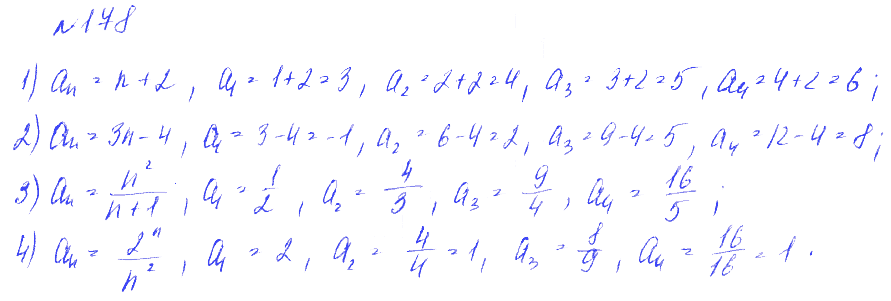 №178
1) aₙ = n + 2, a₁ = 1+2 = 3, a₂ = 2+2 = 4, a₃ = 3+2 = 5, a₄ = 4+2 = 6;
2) aₙ = 3n - 4, a₁ = 3-4 = -1, a₂ = 6-4 = 2, a₃ = 9-4 = 5, a₄ = 12-4 = 8;
3) aₙ = n²/(n+1), a₁ = 1/2, a₂ = 4/3, a₃ = 9/4, a₄ = 16/5;
4) aₙ = 2ⁿ/n², a₁ = 2, a₂ = 4/4 = 1, a₃ = 8/9, a₄ = 16/16 = 1.